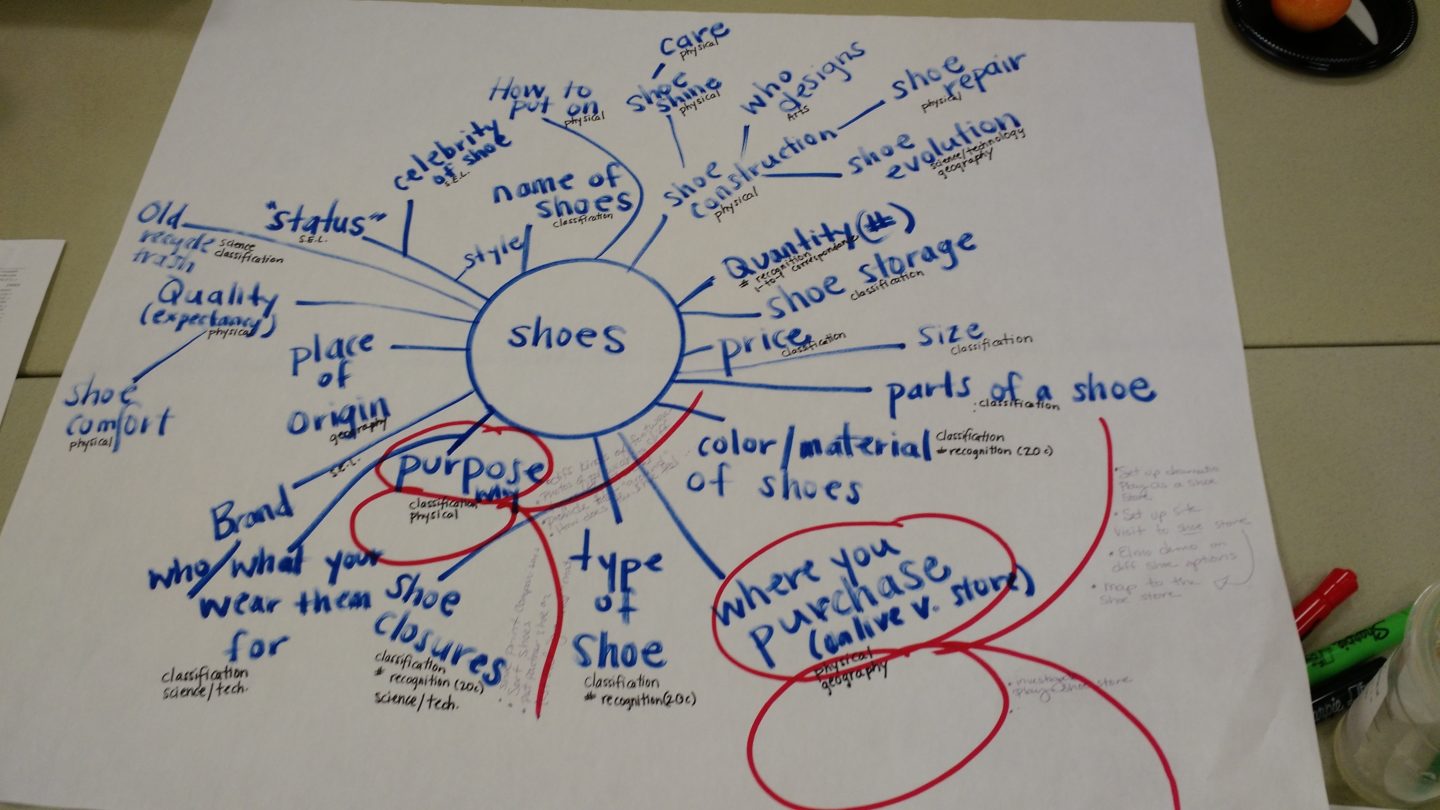 care
physical
shoe
shine
physical
How to
put on
physical
who
designs
Arts
shoe
repair
physical
celebrity
of shoe
S.E.L.
name of
shoes
classification
shoe
construction
physical
shoe
evolution
science/technology
geography
Old
recycle
trash
science
classification
"status"
S.E.L.
style
Quantity (#)
# recognition
1-to-1 correspondance
shoe storage
classification
Quality
(expectancy)
physical
shoes
price
classification
size
classification
place
of
origin
geography
shoe
comfort
physical
parts of a shoe
classification
color/material
of shoes
classification
# recognition (20c)
purpose
why
classification
physical
S.E.L.
Brand
who/what your
wear them
for
classification
science/tech.
shoe
closures
classification
# recognition (20c)
science/tech.
type
of
shoe
classification
# recognition (20c)
where you
purchase
(onlive v. store)
physical
geography
• Set up dramatic
play as a shoe
store
• Set up site
visit to shoe store
demo on
diff shoe options
• map to the
shoe store
Sharpie